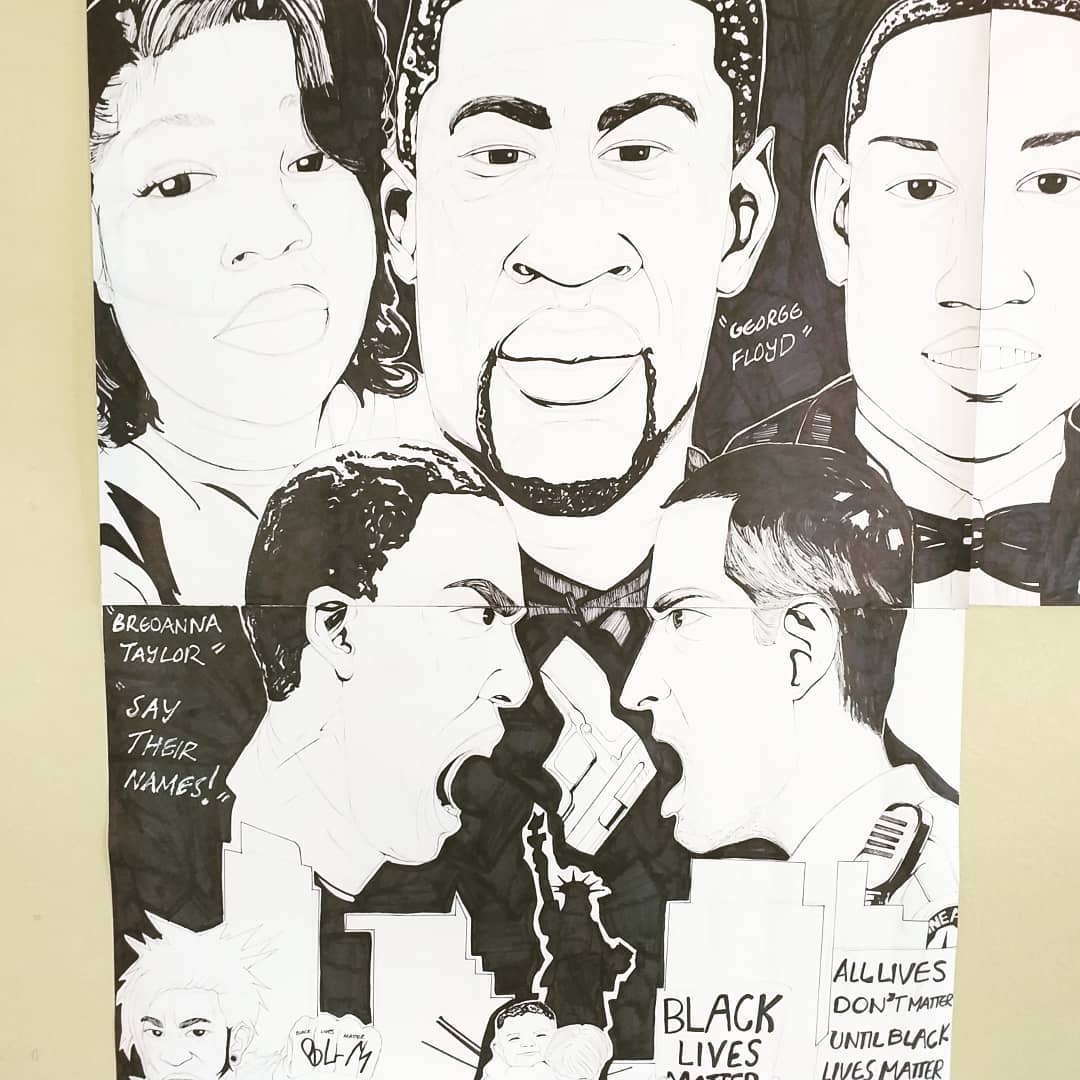 "GEORGE
FLOYD"
"BREOANNA
TAYLOR"
"SAY
THEIR
NAMES!"
BLACK LIVES MATTER
BLM
BLACK
LIVES
MATTER
ALL LIVES
DON'T MATTER
UNTIL BLACK
LIVES MATTER